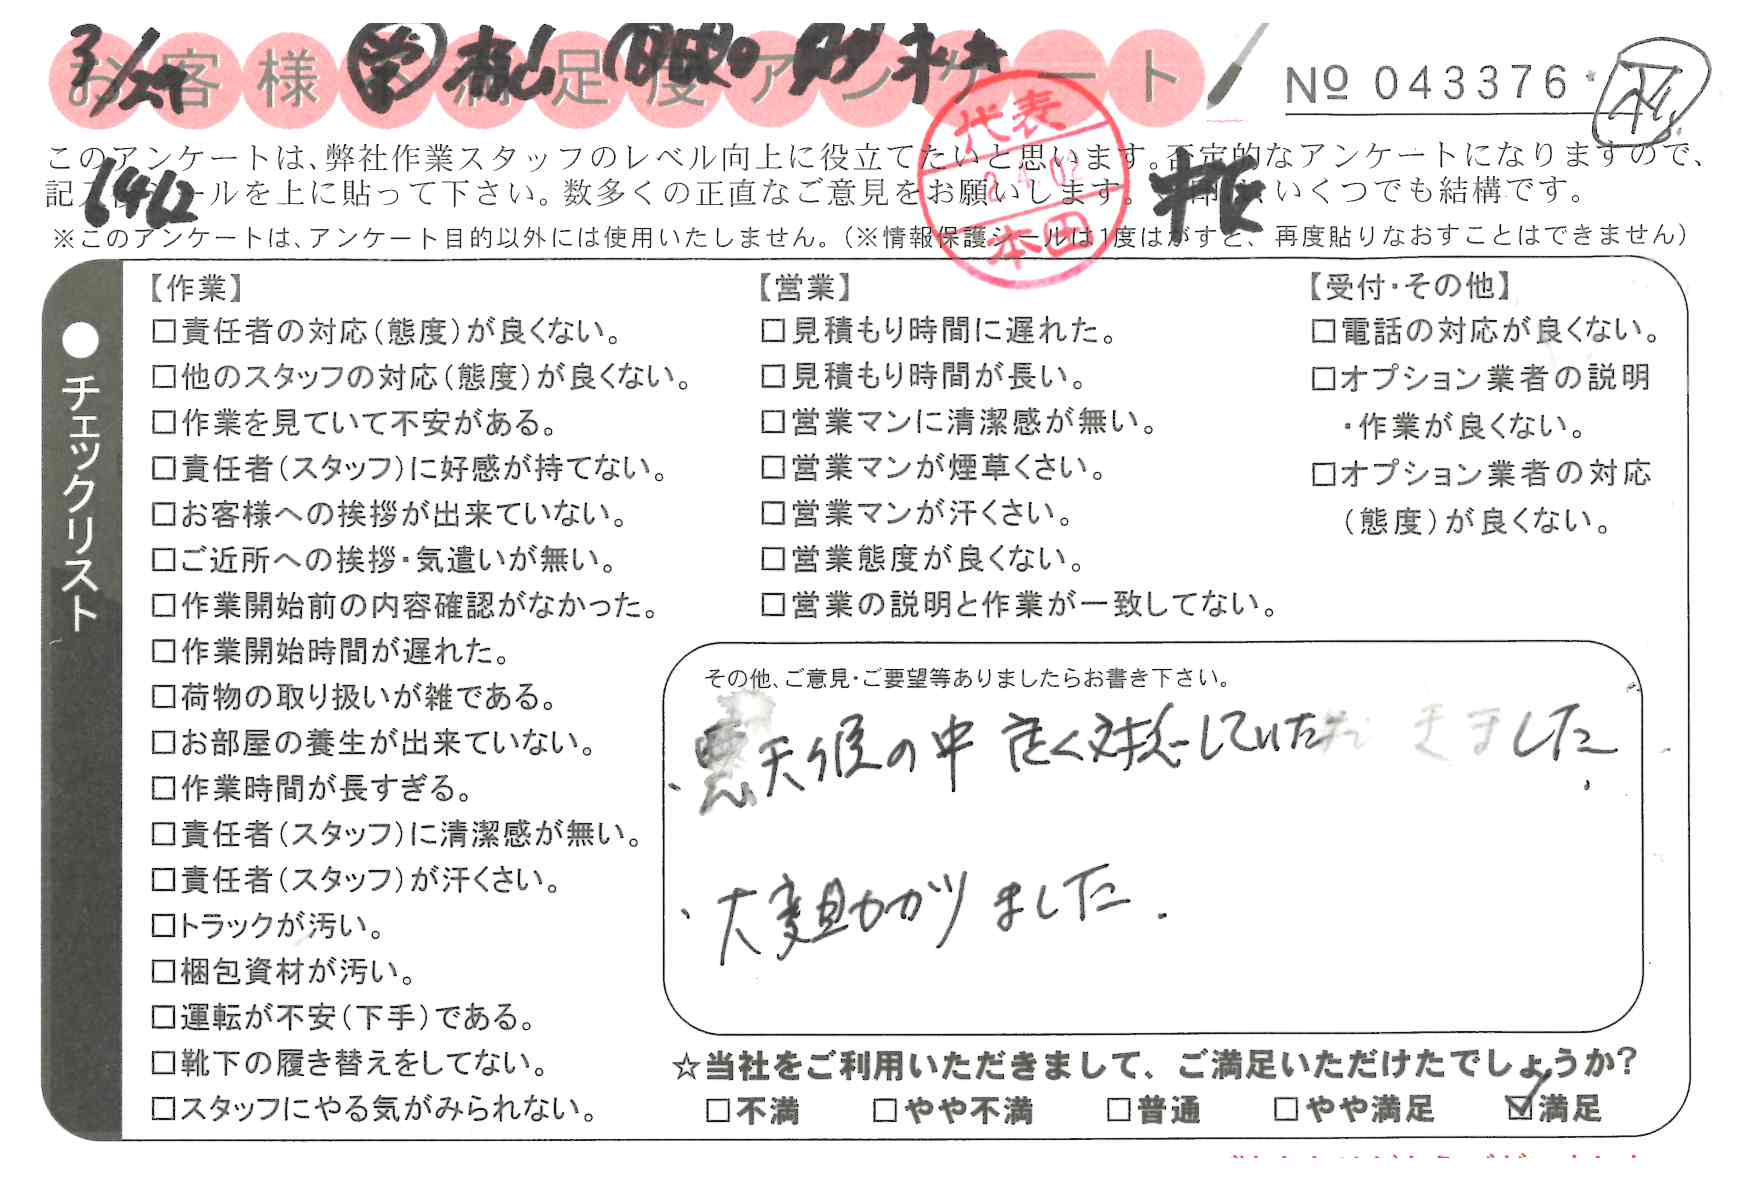 3/27
お客様満足度アンケート
No 043376
このアンケートは、弊社作業スタッフのレベル向上に役立てたいと思います。否定的なアンケートになりますので、
記入後シールを上に貼って下さい。数多くの正直なご意見をお願いします。 印は、いくつでも結構です。
6462
代表
2.4.02
本田
※このアンケートは、アンケート目的以外には使用いたしません。(※情報保護シールは1度はがすと、再度貼りなおすことはできません)
●チェックリスト
【作業】
□責任者の対応(態度)が良くない。
□他のスタッフの対応(態度)が良くない。
□作業を見ていて不安がある。
□責任者(スタッフ)に好感が持てない。
□お客様への挨拶が出来ていない。
□ご近所への挨拶・気遣いが無い。
□作業開始前の内容確認がなかった。
□作業開始時間が遅れた。
□荷物の取り扱いが雑である。
□お部屋の養生が出来ていない。
□作業時間が長すぎる。
□責任者(スタッフ)に清潔感が無い。
□責任者(スタッフ)が汗くさい。
□トラックが汚い。
□梱包資材が汚い。
□運転が不安(下手)である。
□靴下の履き替えをしてない。
□スタッフにやる気がみられない。
【営業】
□見積もり時間に遅れた。
□見積もり時間が長い。
□営業マンに清潔感が無い。
□営業マンが煙草くさい。
□営業マンが汗くさい。
□営業態度が良くない。
□営業の説明と作業が一致してない。
【受付・その他】
□電話の対応が良くない。
□オプション業者の説明
・作業が良くない。
□オプション業者の対応
(態度)が良くない。
その他、ご意見・ご要望等ありましたらお書き下さい。
、悪天候の中 良く対応していただきました、
、大変助かりました.
☆当社をご利用いただきまして、ご満足いただけたでしょうか?
□不満 □やや不満 □普通 □やや満足 ☑満足